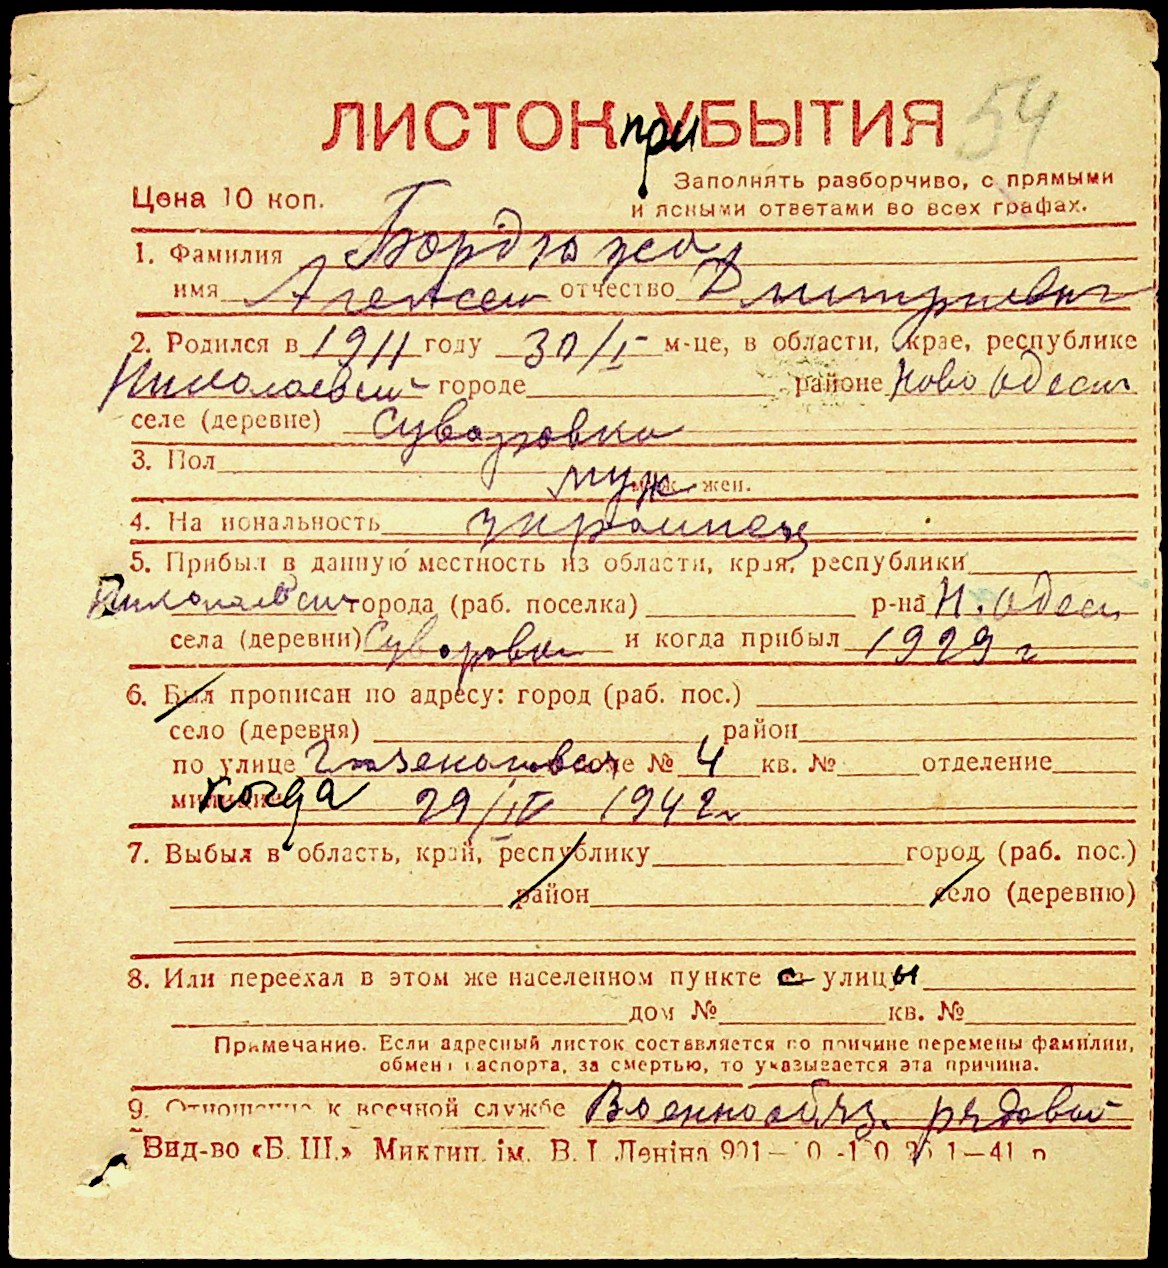 ЛИСТОК при УБЫТИЯ 54
Цена 10 коп.
Заполнять разборчиво, с прямыми
и ясными ответами во всех графах.
1. Фамилия Бордюжа
имя Алексей отчество Дмитриевич
2. Родился в 1911 году 30/I м-це, в области, крае, республике
Николаевск городе районе Ново Одесск
селе (деревне) Суворовка
3. Пол муж. жен.
муж
4. Национальность украинец
5. Прибыл в данную местность из области, края, республики
Николаевск города (раб. поселка) р-на Н. Одесс
села (деревни) Суворовка и когда прибыл 1929 г
6. Был прописан по адресу: город (раб. пос.)
село (деревня) район
по улице доме № 4 кв. № отделение
милиции когда 29/IV 1942 г
7. Выбыл в область, край, республику город (раб. пос.)
район село (деревню)
8. Или переехал в этом же населенном пункте с улицы
дом № кв. №
Примечание. Если адресный листок составляется по причине перемены фамилии,
обмена паспорта, за смертью, то указывается эта причина.
9. Отношение к военной службе Военнообяз. рядовой
Вид-во «Б. Ш.» Миктип. ім. В. І. Леніна